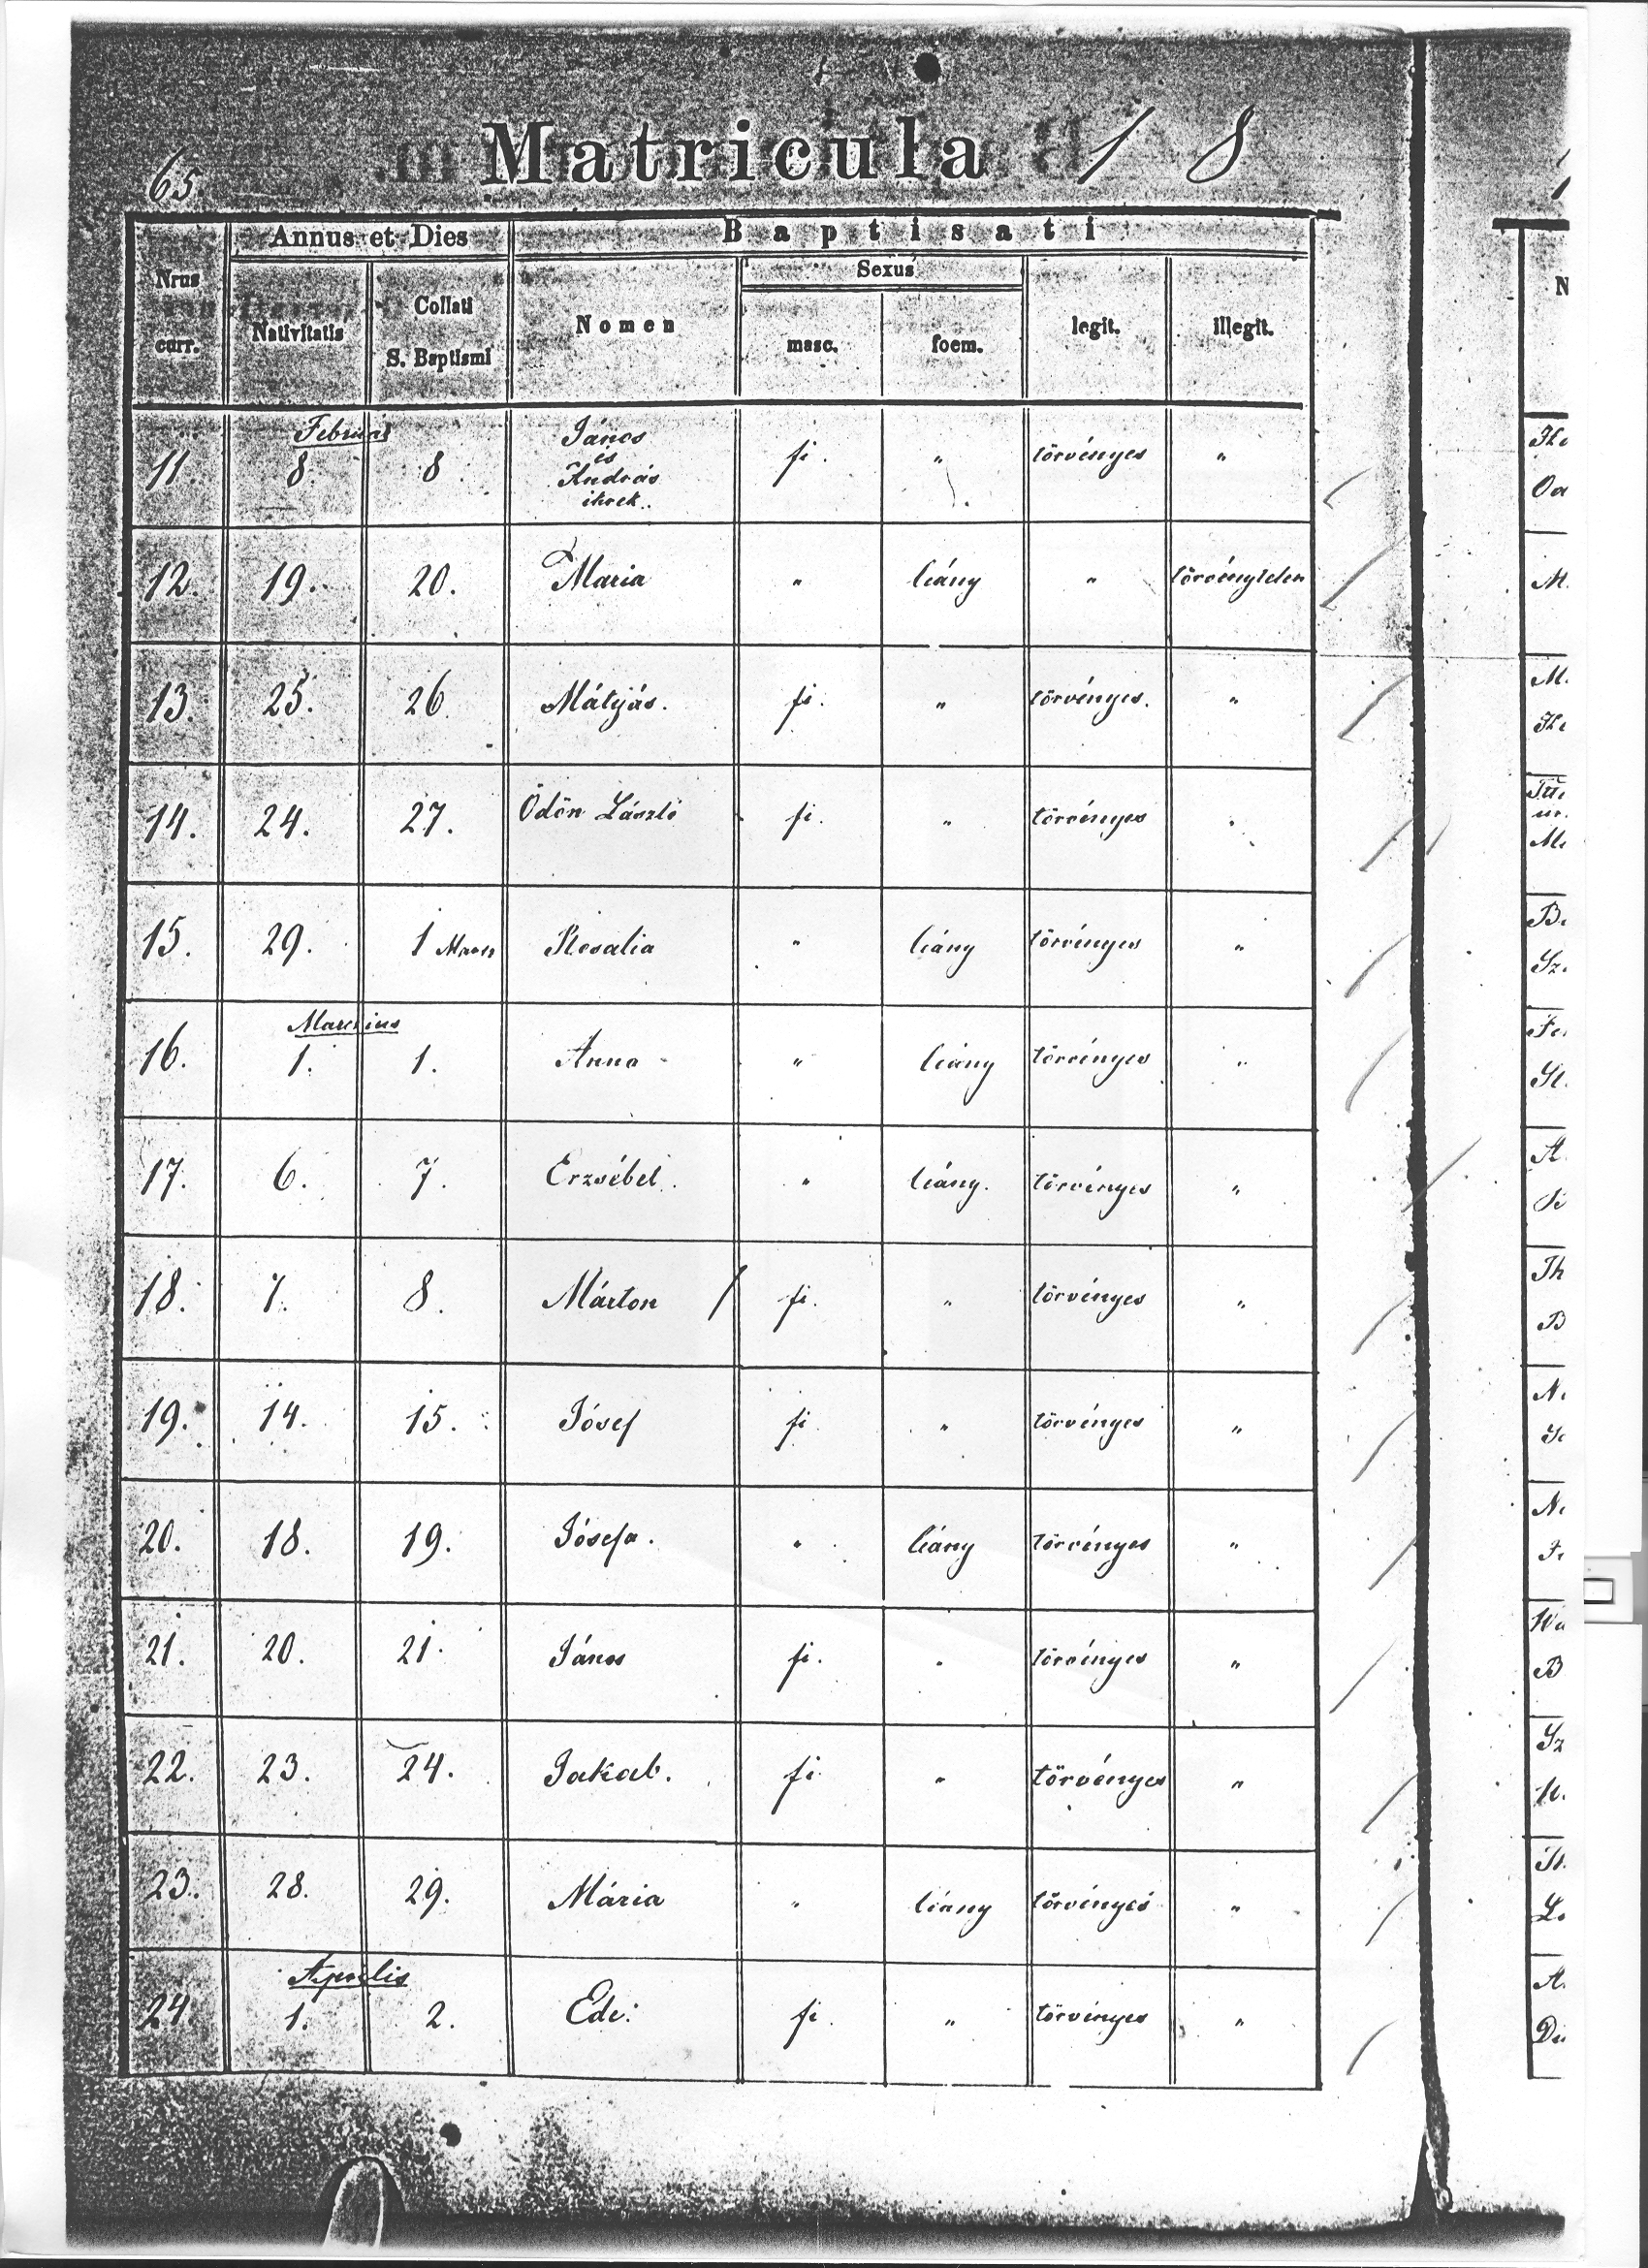 65. Matricula 18
Annus et Dies Baptisati
Nrus curr. Nativitatis Collati S. Baptismi Nomen Sexus masc. foem. legit. illegit.
Február
11. 8. 8 János és András ikrek.. fi. " törvényes "
12. 19. 20. Maria " leány " törvénytelen
13. 25. 26. Mátyás. fi. " törvényes. "
14. 24. 27. Ödön László fi. " törvényes "
15. 29. 1 Rosalia " leány törvényes "
Marcius
16. 1. 1. Anna " leány törvényes "
17. 6. 7. Erzsébet. " leány. törvényes "
18. 7. 8. Márton / fi. " törvényes "
19. 14. 15. Jósef fi " törvényes "
20. 18. 19. Jósefa. " leány törvényes "
21. 20. 21. János fi. " törvényes "
22. 23. 24. Jakab. fi " törvényes "
23. 28. 29. Mária " leány törvényes "
Aprilis
24. 1. 2. Ede. fi. " törvényes "